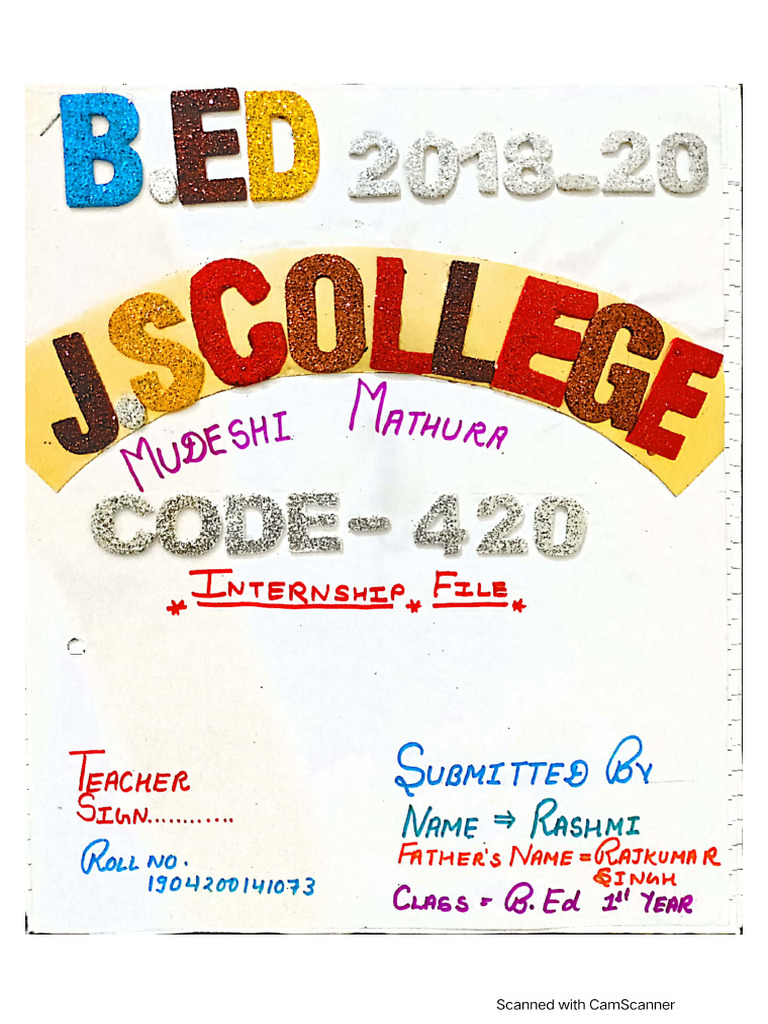 B.ED 2018-20
J.S COLLEGE
MUDESHI MATHURA
CODE-420
* INTERNSHIP * FILE *
TEACHER
SIGN............
ROLL NO.
1904200141073
SUBMITTED BY
NAME ⇒ RASHMI
FATHER'S NAME = RAJKUMAR
SINGH
CLASS = B.Ed 1st YEAR
Scanned with CamScanner